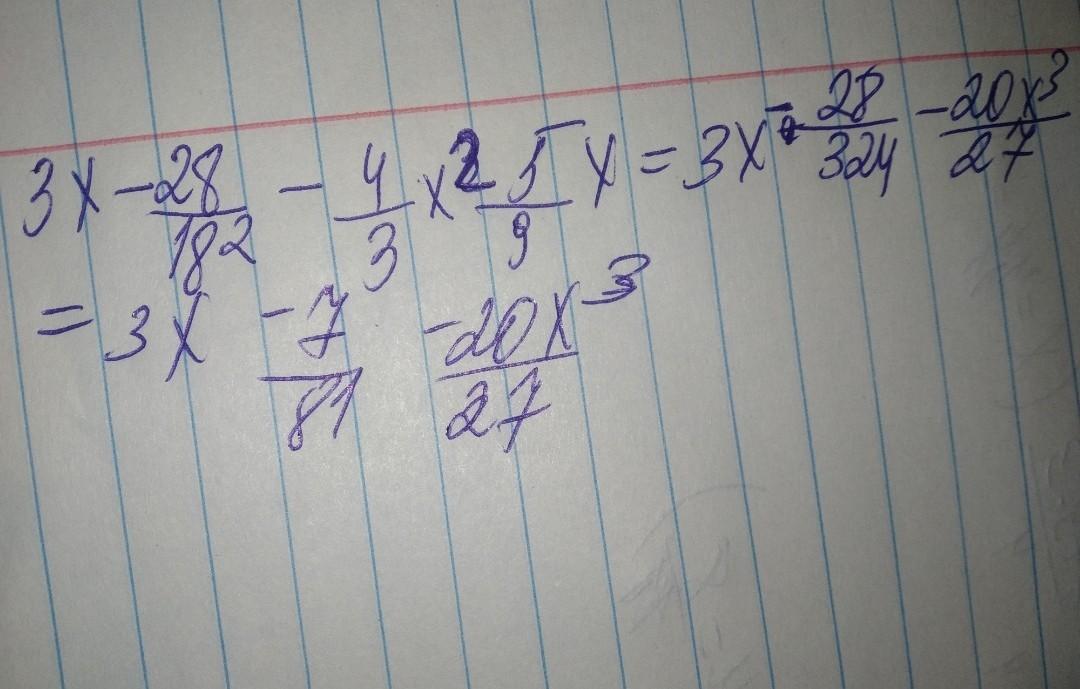 3x - 28/18² - 4/3 x² 5/9 x = 3x - 28/324 - 20x³/27
= 3x - 7/81 - 20x³/27